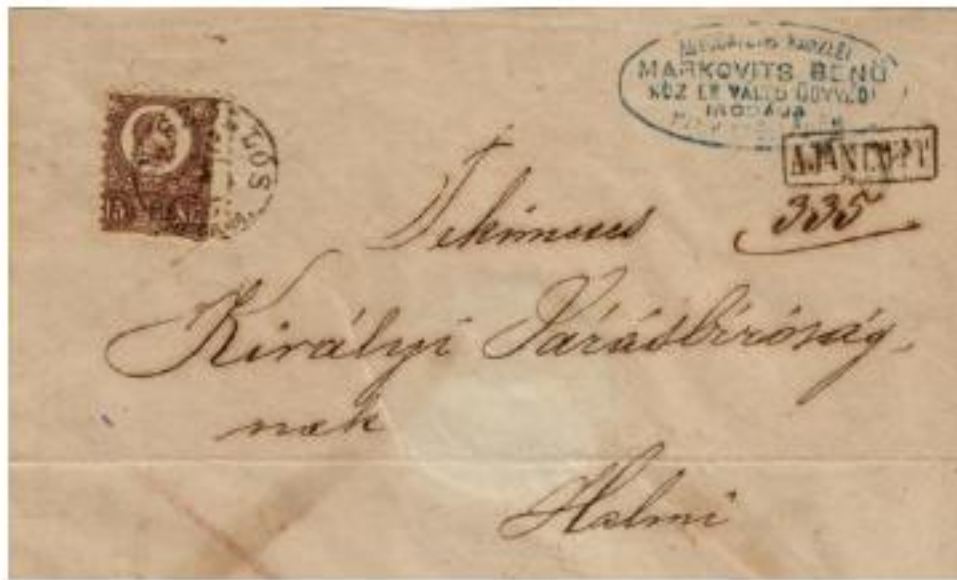 MARKOVITS BENŐ
KÖZ ÉS VÁLTÓ ÜGYVÉDI
IRODÁJA
AJÁNLOTT
335
15
Tekintetes
Királyi Járásbíróság-
nak
Halmi